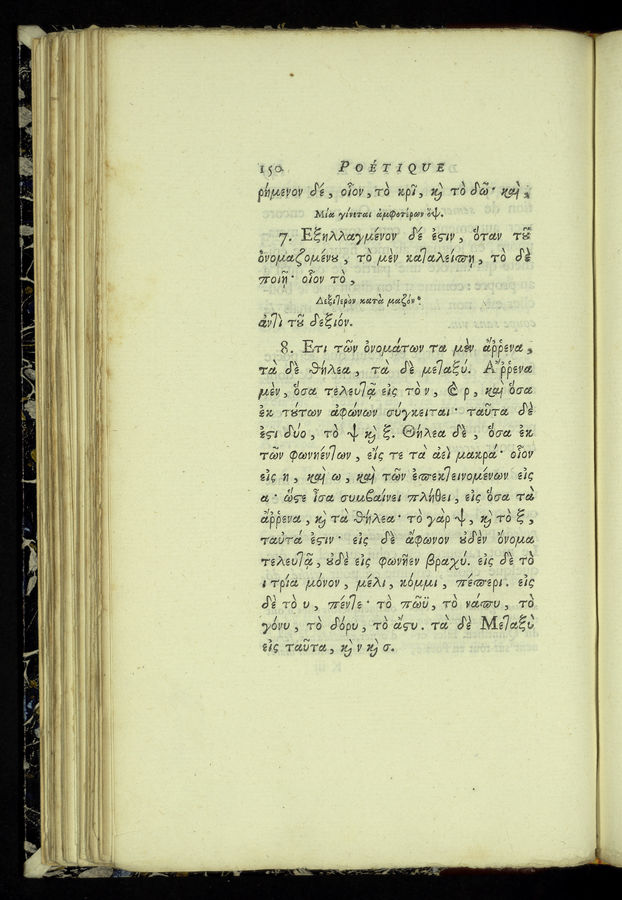 150 POÉTIQUE
ρήμενον δέ, οἷον, τὸ κρῖ, κὶ τὸ δῶ· καὶ,
Μία γίνεται ἀμφοτέρων ὄψ.
7. Εξηλλαγμένον δέ ἐστιν, ὅταν τοῦ
ὀνομαζομένου, τὸ μὲν καταλείπῃ, τὸ δὲ
ποιῇ· οἷον τὸ,
Δεξιτερὸν κατὰ μαζόν·
ἀντὶ τοῦ δεξιόν.
8. Ετι τῶν ὀνομάτων τα μὲν ἄῤῥενα,
τὰ δὲ θήλεα, τὰ δὲ μεταξύ. Αῤῥενα
μὲν, ὅσα τελευτᾷ εἰς τὸ ν, καὶ ρ, καὶ ὅσα
ἐκ τούτων ἀφώνων σύγκειται· ταῦτα δὲ
ἐστι δύο, τὸ ψ καὶ ξ. Θήλεα δὲ, ὅσα ἐκ
τῶν φωνηέντων, εἴς τε τὰ ἀεὶ μακρά· οἷον
εἰς η, καὶ ω, καὶ τῶν ἐπεκτεινομένων εἰς
α· ὥστε ἴσα συμβαίνει πλήθει, εἰς ὅσα τὰ
ἄῤῥενα, καὶ τὰ θήλεα· τὸ γὰρ ψ, καὶ τὸ ξ,
ταὐτά ἐστιν· εἰς δὲ ἄφωνον οὐδὲν ὄνομα
τελευτᾷ, οὐδὲ εἰς φωνῆεν βραχύ. εἰς δὲ τὸ
ι τρία μόνον, μέλι, κόμμι, πέπερι. εἰς
δὲ τὸ υ, πέντε· τὸ πῶϋ, τὸ νάπυ, τὸ
γόνυ, τὸ δόρυ, τὸ ἄστυ. τὰ δὲ Μεταξὺ
εἰς ταῦτα, καὶ ν καὶ σ.